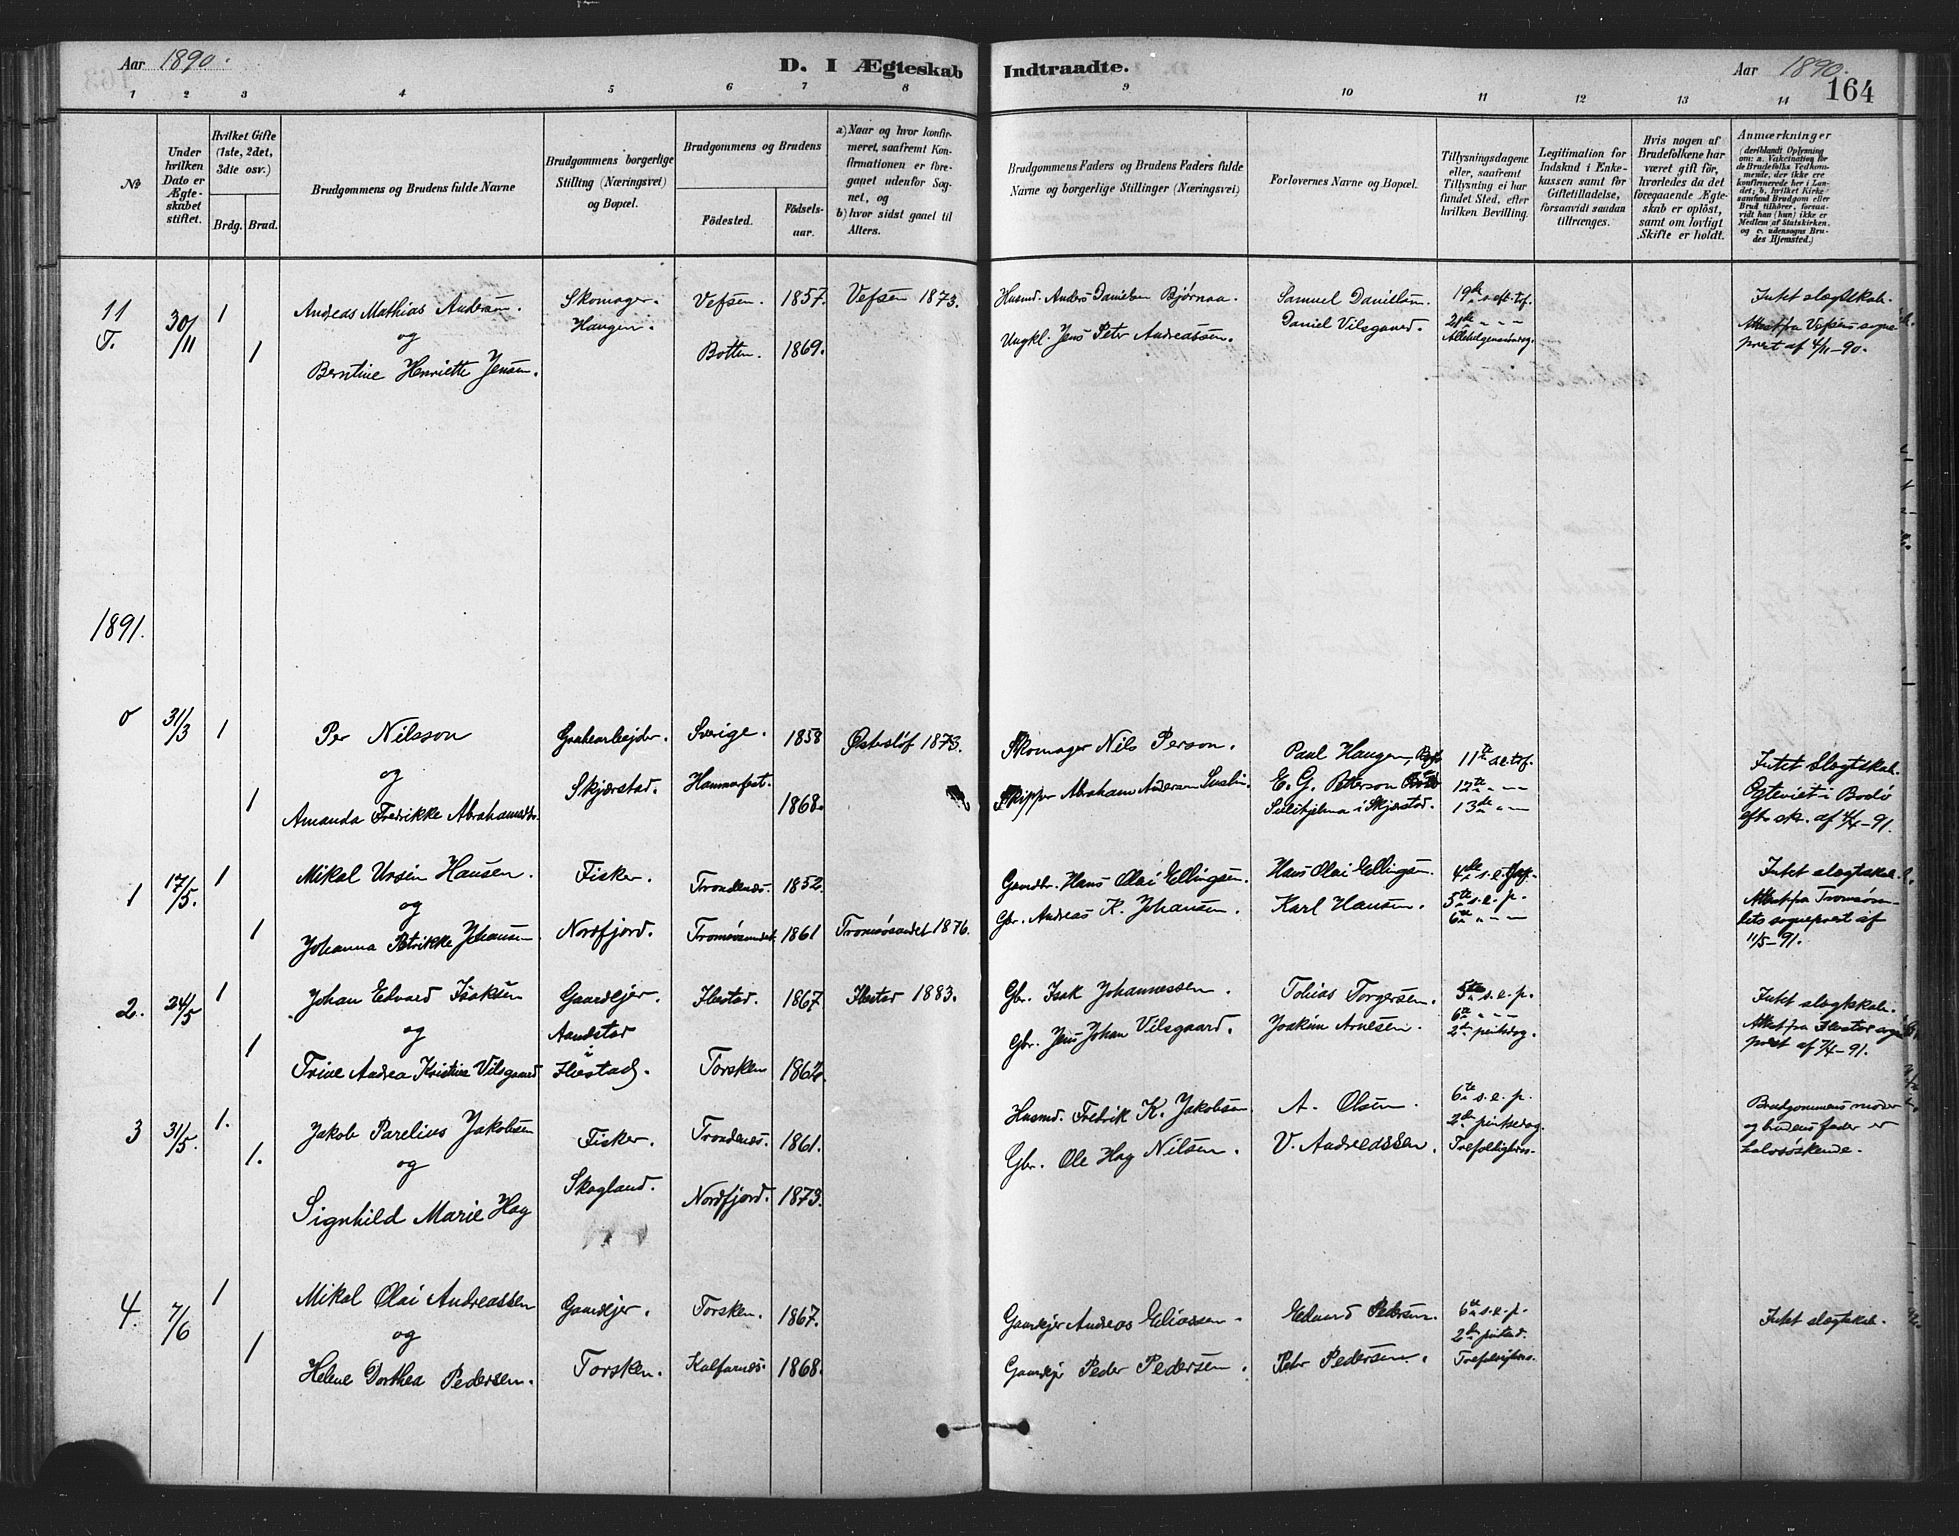 Aar 1890.
D. I Ægteskab Indtraadte.
Aar 1890.
164
1 2 3 4 5 6 7 8 9 10 11 12 13 14
No
Under hvilken Dato er Ægteskabet stiftet.
Hvilket Gifte (1ste, 2det, 3die osv.)
Brdg. Brud.
Brudgommens og Brudens fulde Navne
Brudgommens borgerlige Stilling (Næringsvei) og Bopæl.
Brudgommens og Brudens
Födested.
Födsels-aar.
a) Naar og hvor konfirmeret, saafremt Konfirmationen er foregaaet udenfor Sognet, og
b) hvor sidst gaaet til Alters.
Brudgommens Faders og Brudens Faders fulde Navne og borgerlige Stillinger (Næringsvei)
Forlovernes Navne og Bopæl.
Tillysningsdagene eller, saafremt Tillysning ei har fundet Sted, efter hvilken Bevilling.
Legitimation for Indskud i Enkekassen samt for Giftetilladelse, forsaavidt saadan tiltrænges.
Hvis nogen af Brudefolkene har været gift för, hvorledes da det foregaaende Ægteskab er oplöst, samt om lovligt Skifte er holdt.
Anmærkninger
(deriblandt Oplysning om: a. Vakcination for de Brudefolks Vedkommende, der ikke ere konfirmerede her i Landet; b. hvilket Kirkesamfund Brudgom eller Brud tilhörer, forsaavidt han (hun) ikke er Medlem af Statskirken, og c. udensogns Brudes Hjemsted.)
11 T. 30/11 1 Andreas Mathias Andersen. Skomager. Vefsen. 1857. Vefsen 1873. Husmd. Anders Danielsen Bjørnaa. Samuel Danielsen. 19de s. eft. tref. Intet slægtskab.
og Haugen. Daniel Vilsgaard. 21de " " " Attest fra Vefsens sogne-
1 Berntine Henriette Jensen. Botten. 1869. Ungkl. Jens Peter Andreassen. Allehelgensdag. prest af 4/11-90.
1891.
0 31/3 1 Per Nilsson Grubearbejder. Sverige. 1858 Østesløf 1873. Skomager Nils Person. Paul Haugen, 11te s.e. tref. Intet Slægtskab.
og Skjærstad. Hammerfest. E. G. Petterson 12te " " Ogteviet i Bodö
1 Amanda Fredrikke Abrahamsen. 1868. Skipper Abraham Andersen Sulitjelma i Skjærstad. 13de " " eft. sk. af 4/4-91.
1 17/5. 1 Mikal Ursin Hansen. Fisker. Trondenes. 1852. Gaardbr. Hans Olai Ellingsen. Hans Olai Ellingsen. 4de s.e. Intet slægtskab.
og Nordfjord. 5te s.e.p. Attest fra Tromsösun-
1 Johanna Petrikke Johansen. Tromsösundet. 1861 Tromsösundet 1876. Gbr. Andreas K. Johansen. Karl Hansen. 6te " " dets sogneprest af
11/5-91.
2. 24/5 1 Johan Edvard Isaksen Gaardejer. Ibestad. 1867 Ibestad 1883. Gbr. Isak Johannessen. Tobias Torgersen. 5te s.e.p. Intet slægtskab.
og Aandstad i Joakim Arnesen. 6te " " Attest fra Ibestad sogne
1 Trine Andrea Kristine Vilsgaard Ibestad. Torsken 1862. Gbr. Jens Johan Vilsgaard. 2den pintsdag. prest af 7/4-91.
3 31/5. 1. Jakob Parelius Jakobsen Fisker. Trondenes. 1861. Husmd. Fredrik K. Jakobsen. A. Olsen. 6te s.e.p. Brudgommens moder
og 2den pintsedag. og brudens fader er
1. Signhild Marie Hag Skogland. Nordfjord. 1873. Gbr. Ole Hag Nilsen. V. Andreassen. Trefoldighets- halvsöskende.
4. 7/6 1 Mikal Olai Andreassen Gaardejer. Torsken. 1867. Gaardejer Andreas Eliassen. Edvard Pedersen. 6te s.e.p. Intet slægtskab.
og 2den pintsd.
1 Helene Dorthea Pedersen. Torsken. Kalfarnes. 1868. Gaardejer Peder Pedersen. Peter Pedersen. Trefoldighets.